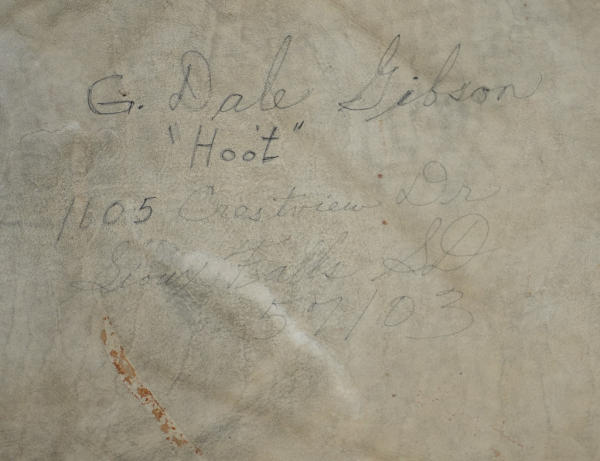 G. Dale Gibson
"Hoot"
1605 Crestview Dr
Sioux Falls SD
57103